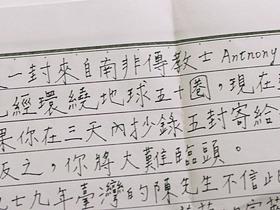 一封來自南非傳教士 Antnony
經環繞地球五十圈，現在
果你在三天內抄錄五封寄給
反之，你將大難臨頭。
七九年臺灣的陳先生不信此